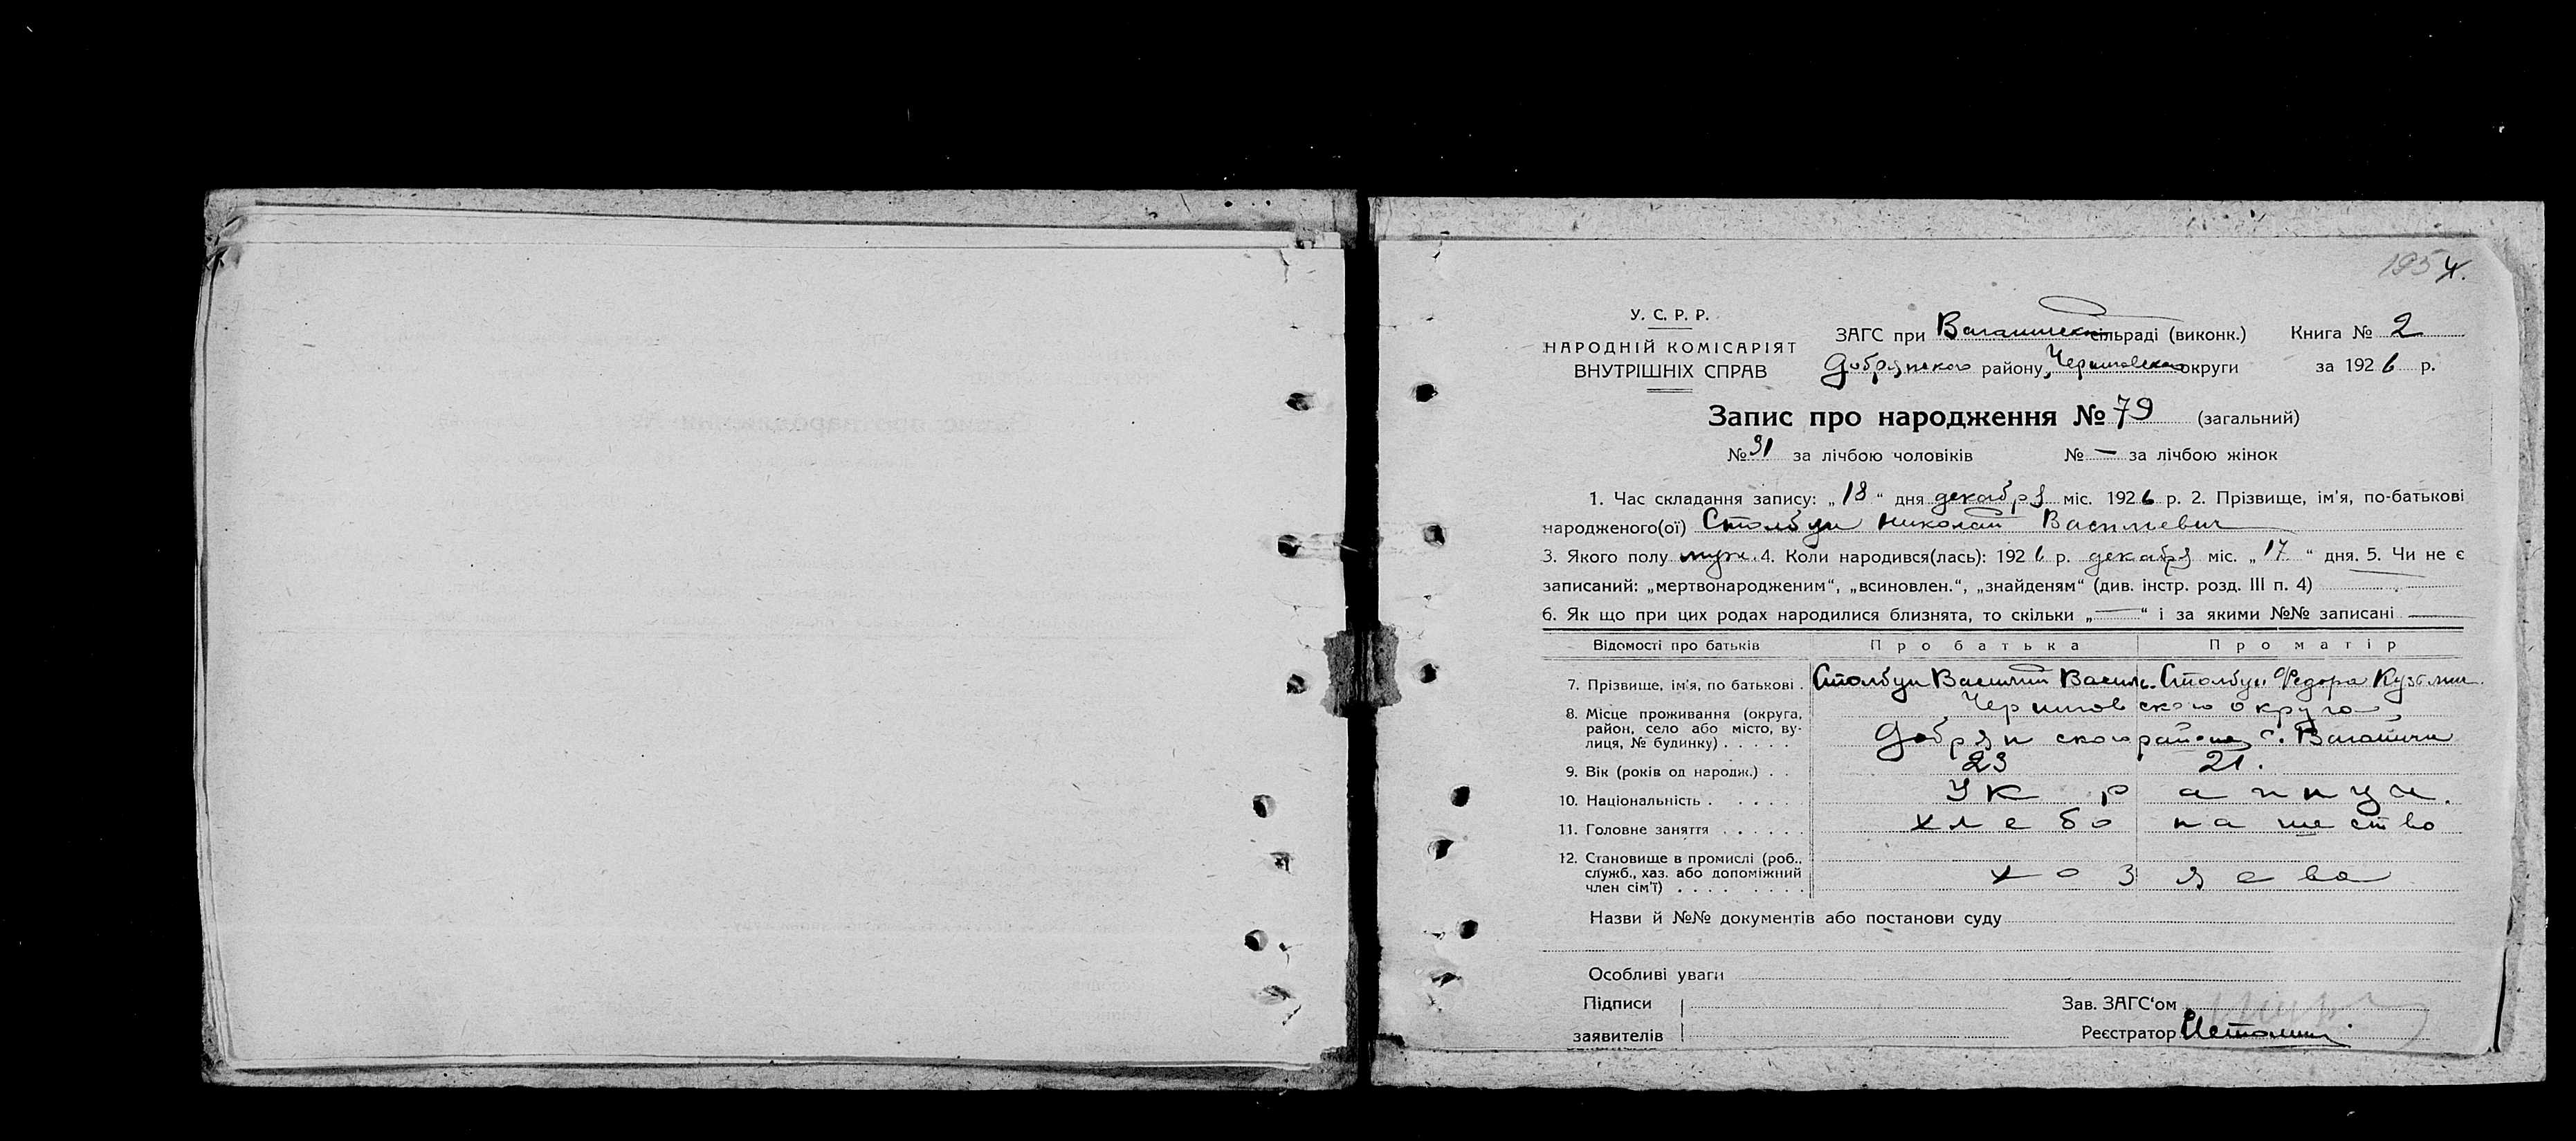 1954.
У. С. Р. Р.
НАРОДНІЙ КОМІСАРІЯТ
ВНУТРІШНІХ СПРАВ
ЗАГС при сільраді (виконк.) Книга № 2
Добрянского району, Черниговского округи за 1926 р.
Запис про народження № 79 (загальний)
№ 31 за лічбою чоловіків № — за лічбою жінок
1. Час складання запису: „18“ дня декабря міс. 1926 р. 2. Прізвище, ім'я, по-батькові
народженого(ої) Столбун Николай Васильевич
3. Якого полу муж. 4. Коли народився(лась): 1926 р. декабря міс. „17“ дня. 5. Чи не є
записаний: „мертвонародженим“, „всиновлен.“, „знайденям“ (див. інстр. розд. III п. 4)
6. Як що при цих родах народилися близнята, то скільки „—“ і за якими №№ записані —
Відомості про батьків Про батька Про матір
7. Прізвище, ім'я, по батькові . Столбун Василий Василь. Столбун Федора Кузьмин.
8. Місце проживання (округа, район, село або місто, вулиця, № будинку) . . . . . Черниговского округа
Добрянского района с. Ваганичи
9. Вік (років од народж.) . . 23 21.
10. Національність . . . . . . Украинцы.
11. Головне заняття . . . . . . хлебопашество
12. Становище в промислі (роб., служб., хаз. або допоміжний член сім'ї) . . . . . . . . хозяева
Назви й №№ документів або постанови суду
Особливі уваги
Підписи
заявителів
Зав. ЗАГС'ом
Реєстратор